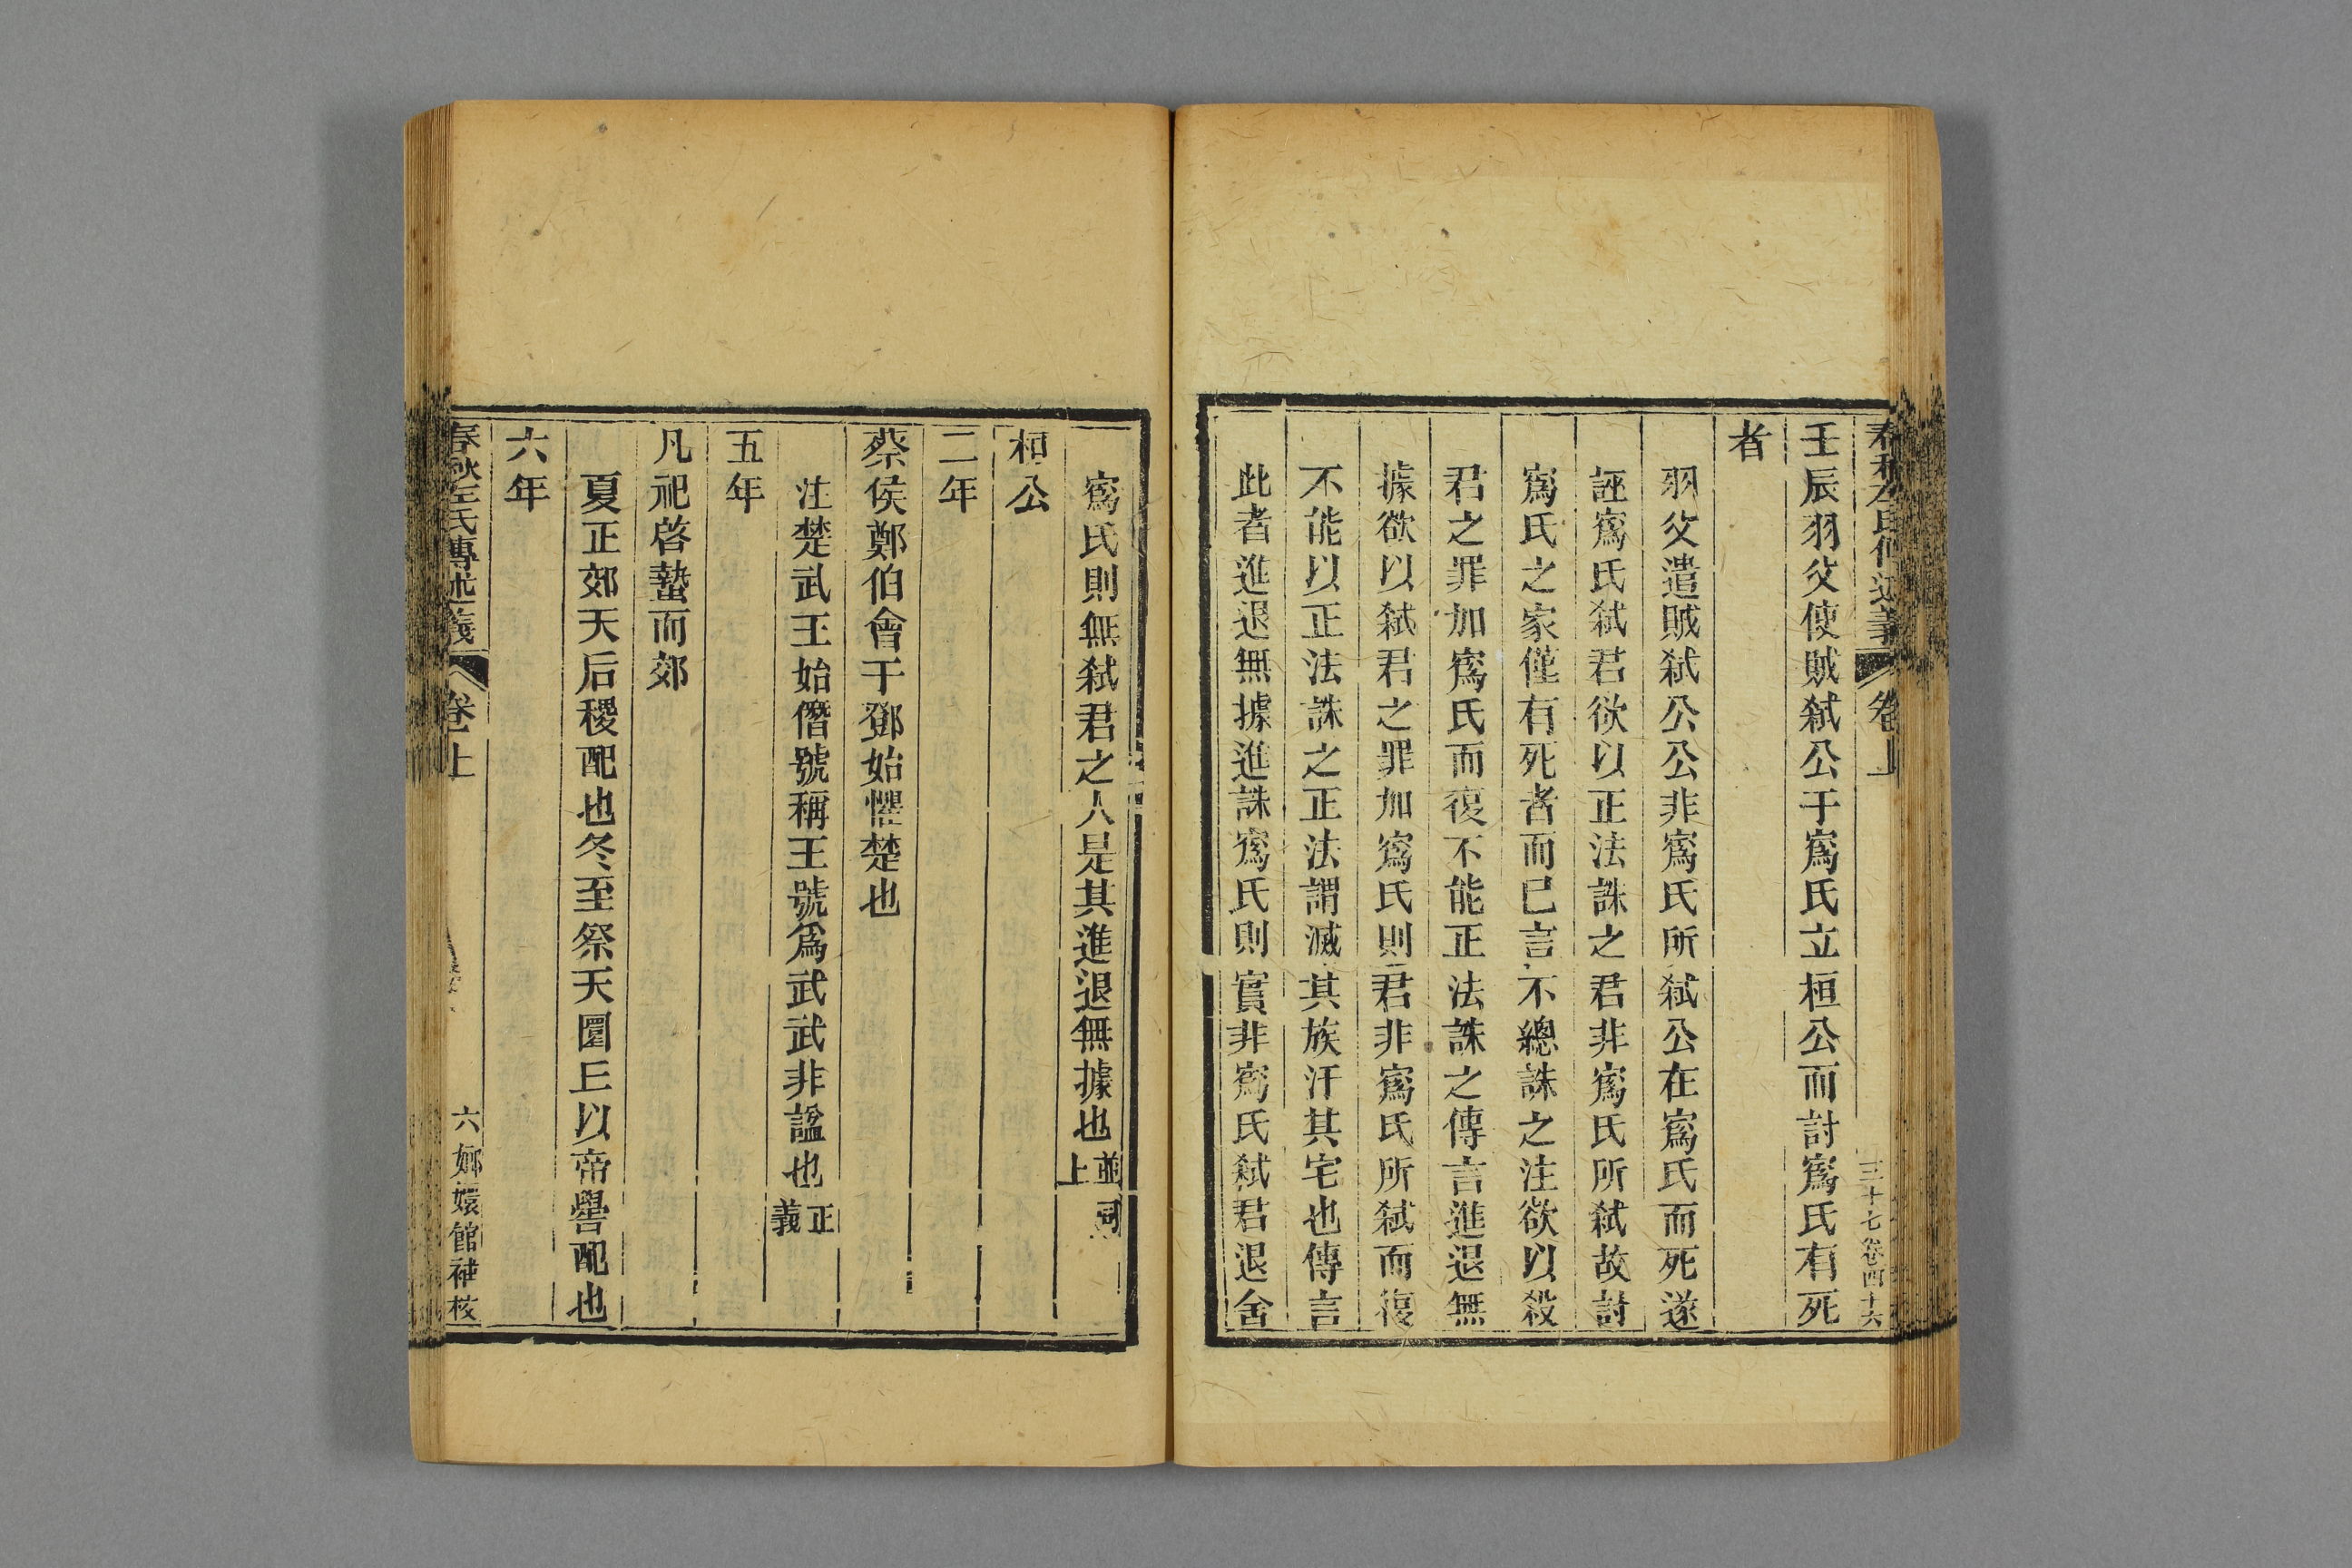 春秋左氏傳述義 卷上 三十七卷四十六
壬辰羽父使賊弑公于寪氏立桓公而討寪氏有死
者
羽父遣賊弑公公非寪氏所弑公在寪氏而死遂
誣寪氏弑君欲以正法誅之君非寪氏所弑故討
寪氏之家僅有死者而已言不總誅之注欲以殺
君之罪加寪氏而復不能正法誅之傳言進退無
據欲以弑君之罪加寪氏則君非寪氏所弑而復
不能以正法誅之正法謂滅其族汙其宅也傳言
此者進退無據進誅寪氏則實非寪氏弑君退舍
寪氏則無弑君之人是其進退無據也並同上
桓公
二年
蔡侯鄭伯會于鄧始懼楚也
注楚武王始僭號稱王號爲武武非謚也正義
五年
凡祀啓蟄而郊
夏正郊天后稷配也冬至祭天圜丘以帝嚳配也
六年
春秋左氏傳述義 卷上 六 嫏嬛館補校